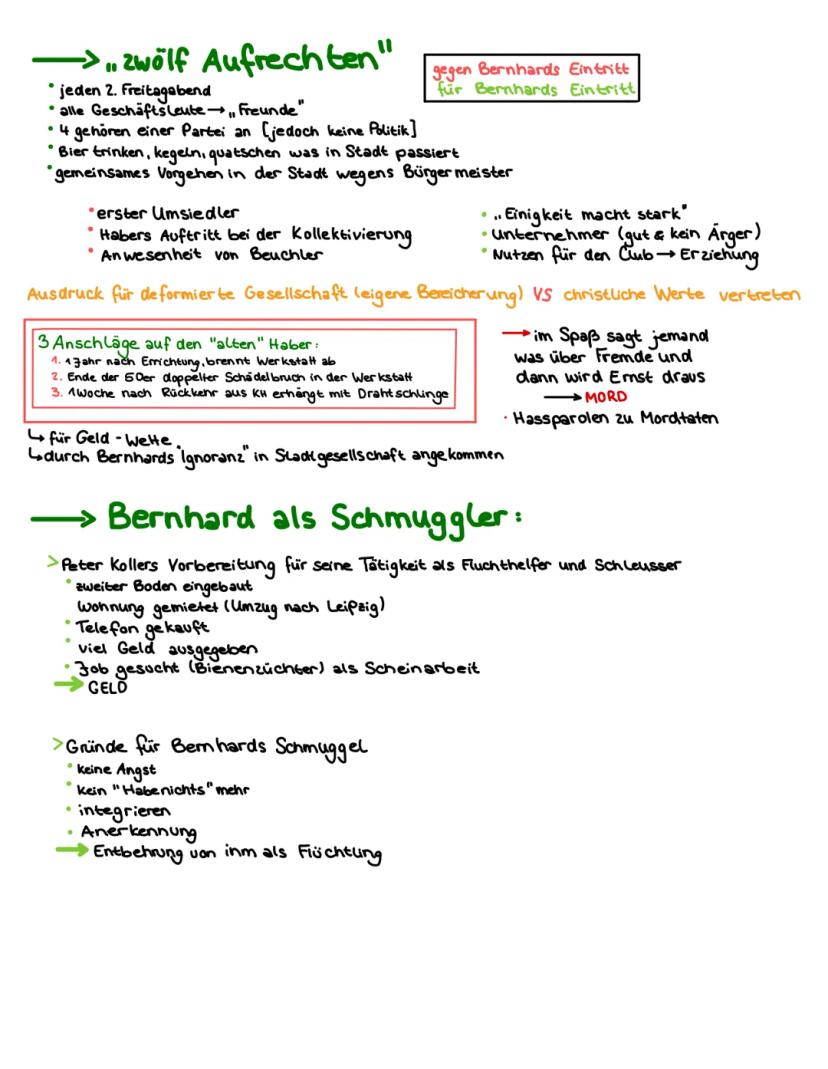 → „zwölf Aufrechten"
gegen Bernhards Eintritt
für Bernhards Eintritt
• jeden 2. Freitagabend
• alle Geschäftsleute → „Freunde"
• 4 gehören einer Partei an [jedoch keine Politik]
• Bier trinken, kegeln, quatschen was in Stadt passiert
• gemeinsames Vorgehen in der Stadt wegens Bürgermeister
• erster Umsiedler
• Habers Auftritt bei der Kollektivierung
• Anwesenheit von Beuchler
• „Einigkeit macht stark"
• Unternehmer (gut & kein Ärger)
• Nutzen für den Club → Erziehung
Ausdruck für deformierte Gesellschaft (eigene Bereicherung) VS christliche Werte vertreten
3 Anschläge auf den "alten" Haber:
1. 1 Jahr nach Errichtung, brennt Werkstatt ab
2. Ende der 50er doppelter Schädelbruch in der Werkstatt
3. 1 Woche nach Rückkehr aus KH erhängt mit Drahtschlinge
→ im Spaß sagt jemand
was über Fremde und
dann wird Ernst draus
→ MORD
• Hassparolen zu Mordtaten
↳ für Geld - Wette
↳ durch Bernhards "Ignoranz" in Stadtgesellschaft angekommen
→ Bernhard als Schmuggler:
> Peter Kollers Vorbereitung für seine Tätigkeit als Fluchthelfer und Schleusser
• zweiter Boden eingebaut
Wohnung gemietet (Umzug nach Leipzig)
• Telefon gekauft
• viel Geld ausgegeben
• Job gesucht (Bienenzüchter) als Scheinarbeit
→ GELD
> Gründe für Bernhards Schmuggel
• keine Angst
• kein "Habenichts" mehr
• integrieren
• Anerkennung
→ Entbehrung von ihm als Flüchtlung